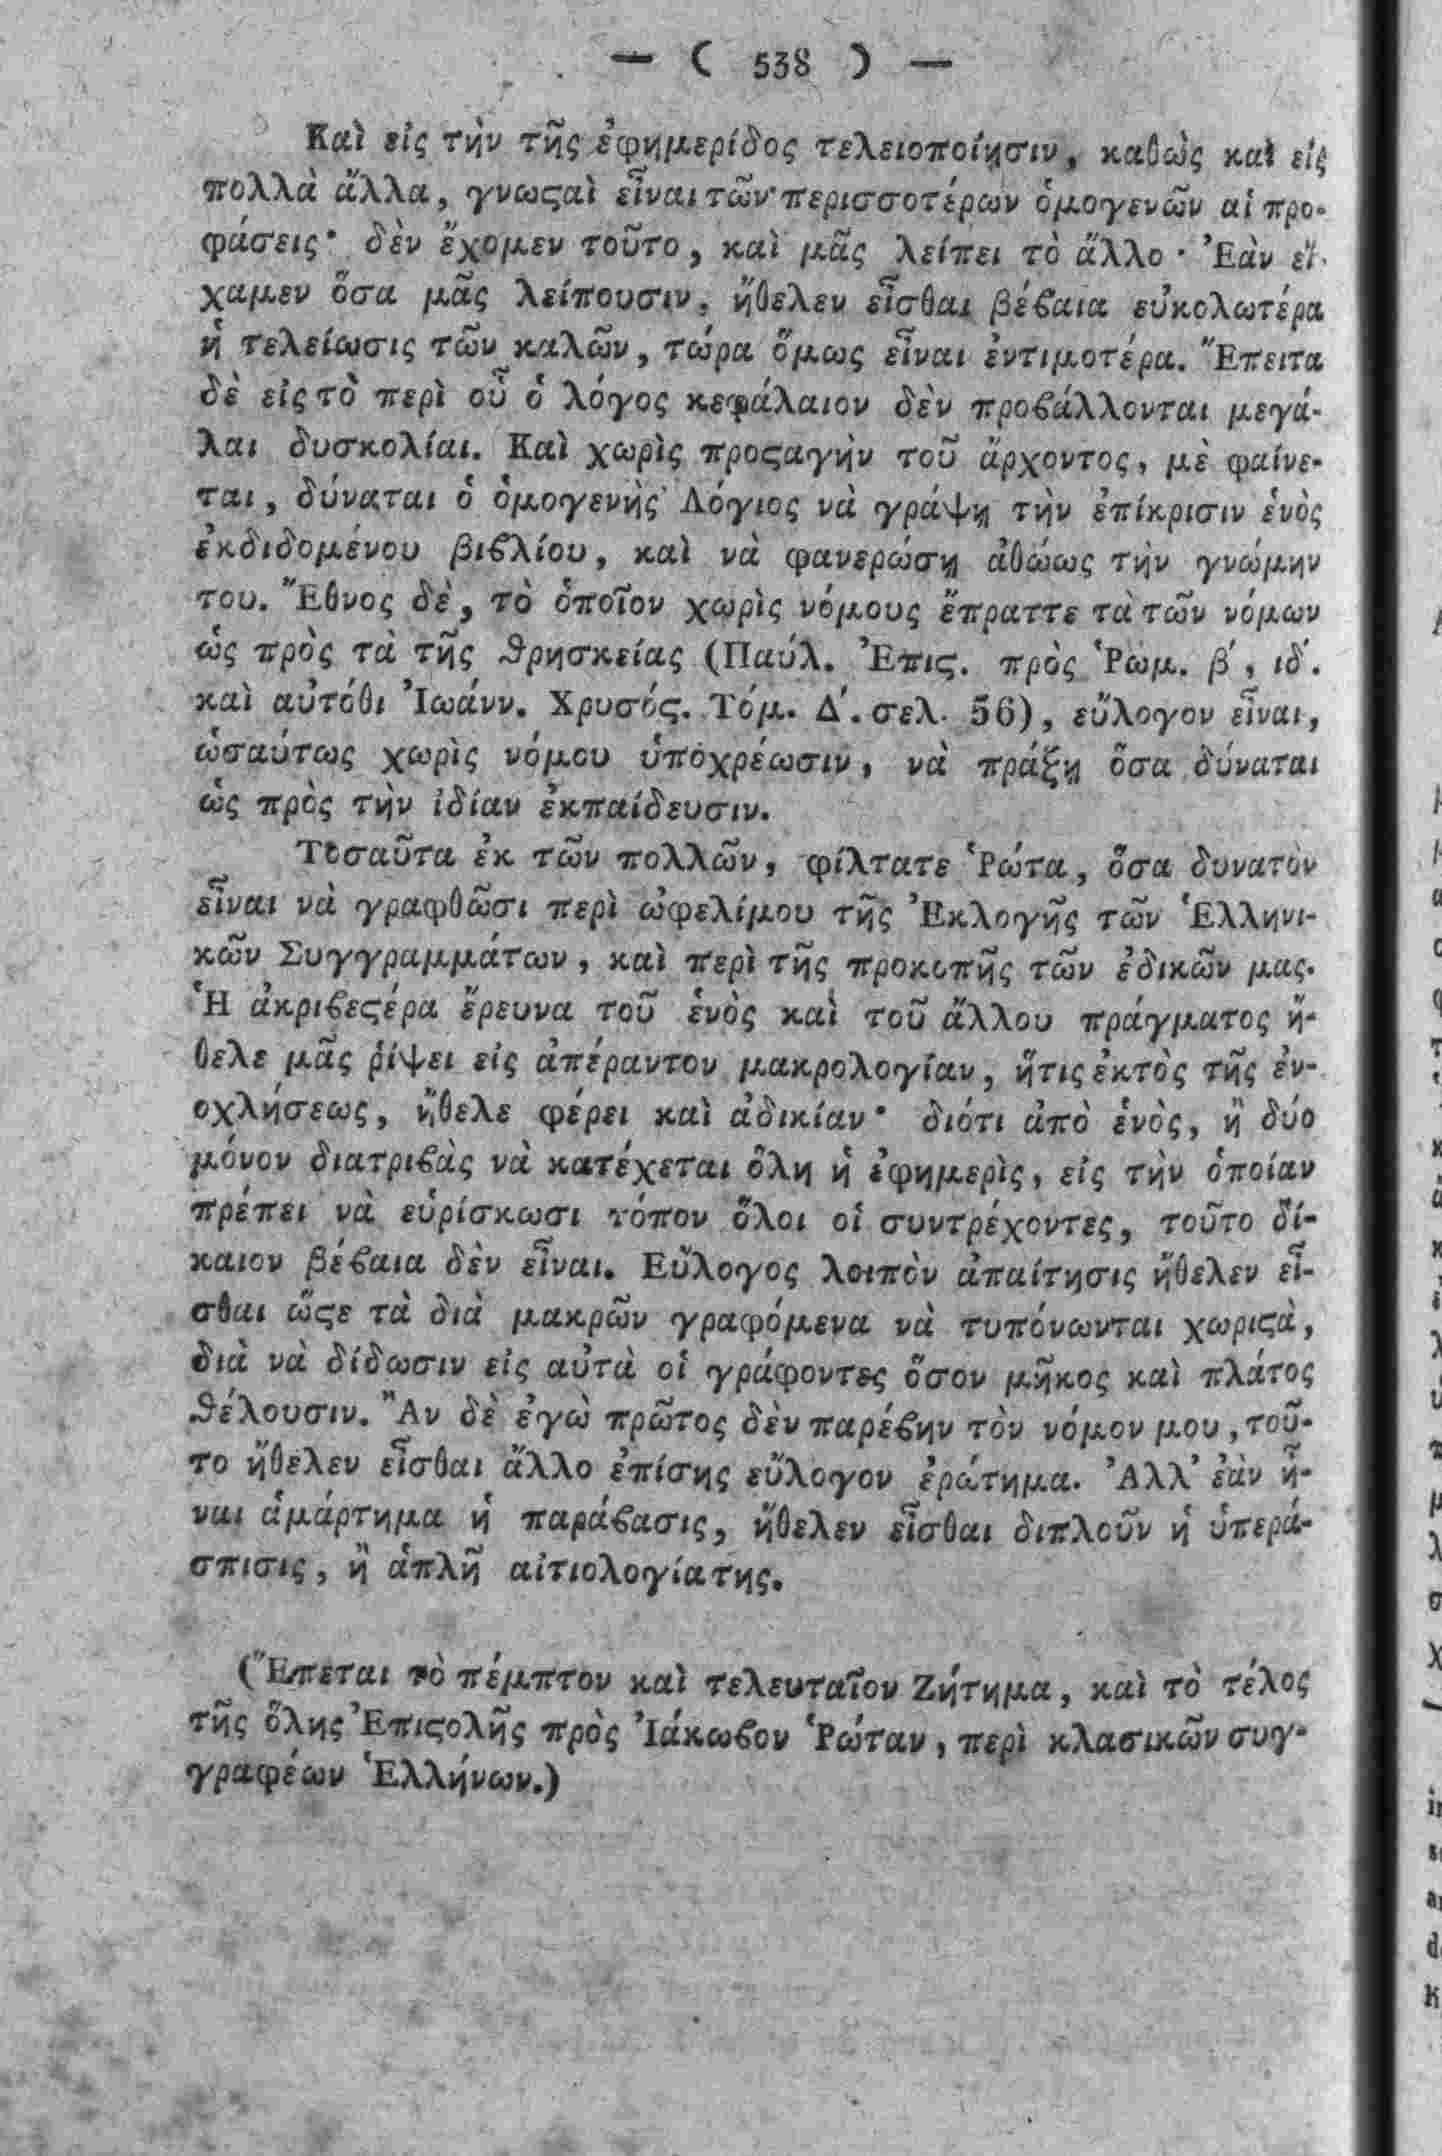 — ( 538 ) —
Καὶ εἰς τὴν τῆς ἐφημερίδος τελειοποίησιν, καθὼς καὶ εἰς
πολλὰ ἄλλα, γνωςαὶ εἶναι τῶν περισσοτέρων ὁμογενῶν αἱ προ-
φάσεις· δὲν ἔχομεν τοῦτο, καὶ μᾶς λείπει τὸ ἄλλο· Ἐὰν εἴ-
χαμεν ὅσα μᾶς λείπουσιν, ἤθελεν εἶσθαι βέϐαια εὐκολωτέρα
ἡ τελείωσις τῶν καλῶν, τώρα ὅμως εἶναι ἐντιμοτέρα. Ἔπειτα
δὲ εἰς τὸ περὶ οὗ ὁ λόγος κεφάλαιον δὲν προϐάλλονται μεγά-
λαι δυσκολίαι. Καὶ χωρὶς προςαγὴν τοῦ ἄρχοντος, μὲ φαίνε-
ται, δύναται ὁ ὁμογενὴς Λόγιος νὰ γράψῃ τὴν ἐπίκρισιν ἑνὸς
ἐκδιδομένου βιϐλίου, καὶ νὰ φανερώσῃ ἀθώως τὴν γνώμην
του. Ἔθνος δὲ, τὸ ὁποῖον χωρὶς νόμους ἔπραττε τὰ τῶν νόμων
ὡς πρὸς τὰ τῆς ϑρησκείας (Παύλ. Ἐπις. πρὸς Ῥωμ. β΄, ιδ΄.
καὶ αὐτόθι Ἰωάνν. Χρυσός. Τόμ. Δ΄. σελ. 56), εὔλογον εἶναι,
ὡσαύτως χωρὶς νόμου ὑποχρέωσιν, νὰ πράξῃ ὅσα δύναται
ὡς πρὸς τὴν ἰδίαν ἐκπαίδευσιν.
Τοσαῦτα ἐκ τῶν πολλῶν, φίλτατε Ῥώτα, ὅσα δυνατὸν
εἶναι νὰ γραφθῶσι περὶ ὠφελίμου τῆς Ἐκλογῆς τῶν Ἑλληνι-
κῶν Συγγραμμάτων, καὶ περὶ τῆς προκοπῆς τῶν ἐδικῶν μας.
Ἡ ἀκριϐεςέρα ἔρευνα τοῦ ἑνὸς καὶ τοῦ ἄλλου πράγματος ἤ-
θελε μᾶς ῥίψει εἰς ἀπέραντον μακρολογίαν, ἥτις ἐκτὸς τῆς ἐν-
οχλήσεως, ἤθελε φέρει καὶ ἀδικίαν· διότι ἀπὸ ἑνὸς, ἢ δύο
μόνον διατριϐὰς νὰ κατέχεται ὅλη ἡ ἐφημερὶς, εἰς τὴν ὁποίαν
πρέπει νὰ εὑρίσκωσι τόπον ὅλοι οἱ συντρέχοντες, τοῦτο δί-
καιον βέϐαια δὲν εἶναι. Εὔλογος λοιπὸν ἀπαίτησις ἤθελεν εἶ-
σθαι ὥςε τὰ διὰ μακρῶν γραφόμενα νὰ τυπόνωνται χωριςὰ,
διὰ νὰ δίδωσιν εἰς αὐτὰ οἱ γράφοντες ὅσον μῆκος καὶ πλάτος
ϑέλουσιν. Ἂν δὲ ἐγὼ πρῶτος δὲν παρέϐην τὸν νόμον μου, τοῦ-
το ἤθελεν εἶσθαι ἄλλο ἐπίσης εὔλογον ἐρώτημα. Ἀλλ᾽ ἐὰν ἦ-
ναι ἁμάρτημα ἡ παράϐασις, ἤθελεν εἶσθαι διπλοῦν ἡ ὑπερά-
σπισις, ἢ ἁπλῆ αἰτιολογία της.
(Ἕπεται τὸ πέμπτον καὶ τελευταῖον Ζήτημα, καὶ τὸ τέλος
τῆς ὅλης Ἐπιςολῆς πρὸς Ἰάκωϐον Ῥώταν, περὶ κλασικῶν συγ-
γραφέων Ἑλλήνων.)